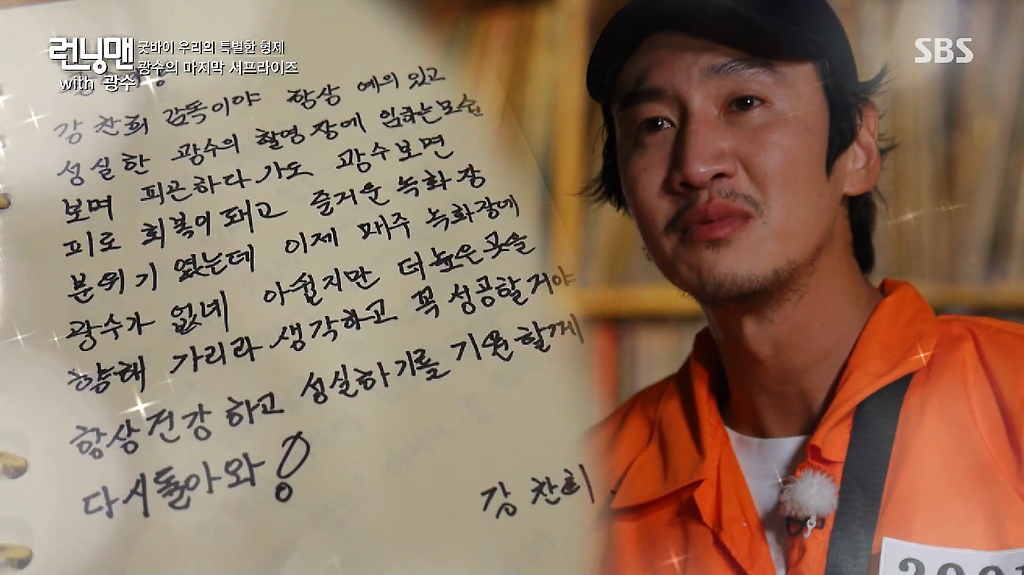 런닝맨
굿바이 우리의 특별한 형제
광수의 마지막 서프라이즈
with 광수
SBS
강찬희 감독이야 항상 예의 있고
성실한 광수의 촬영장에 임하는 모습
보며 피곤하다가도 광수보면
피로 회복이 돼고 즐거운 녹화장
분위기 였는데 이제 매주 녹화장에
광수가 없네 아쉽지만 더 높은곳을
향해 가리라 생각하고 꼭 성공할거야
항상 건강하고 성실하기를 기원할께
다시돌아와!
강찬희